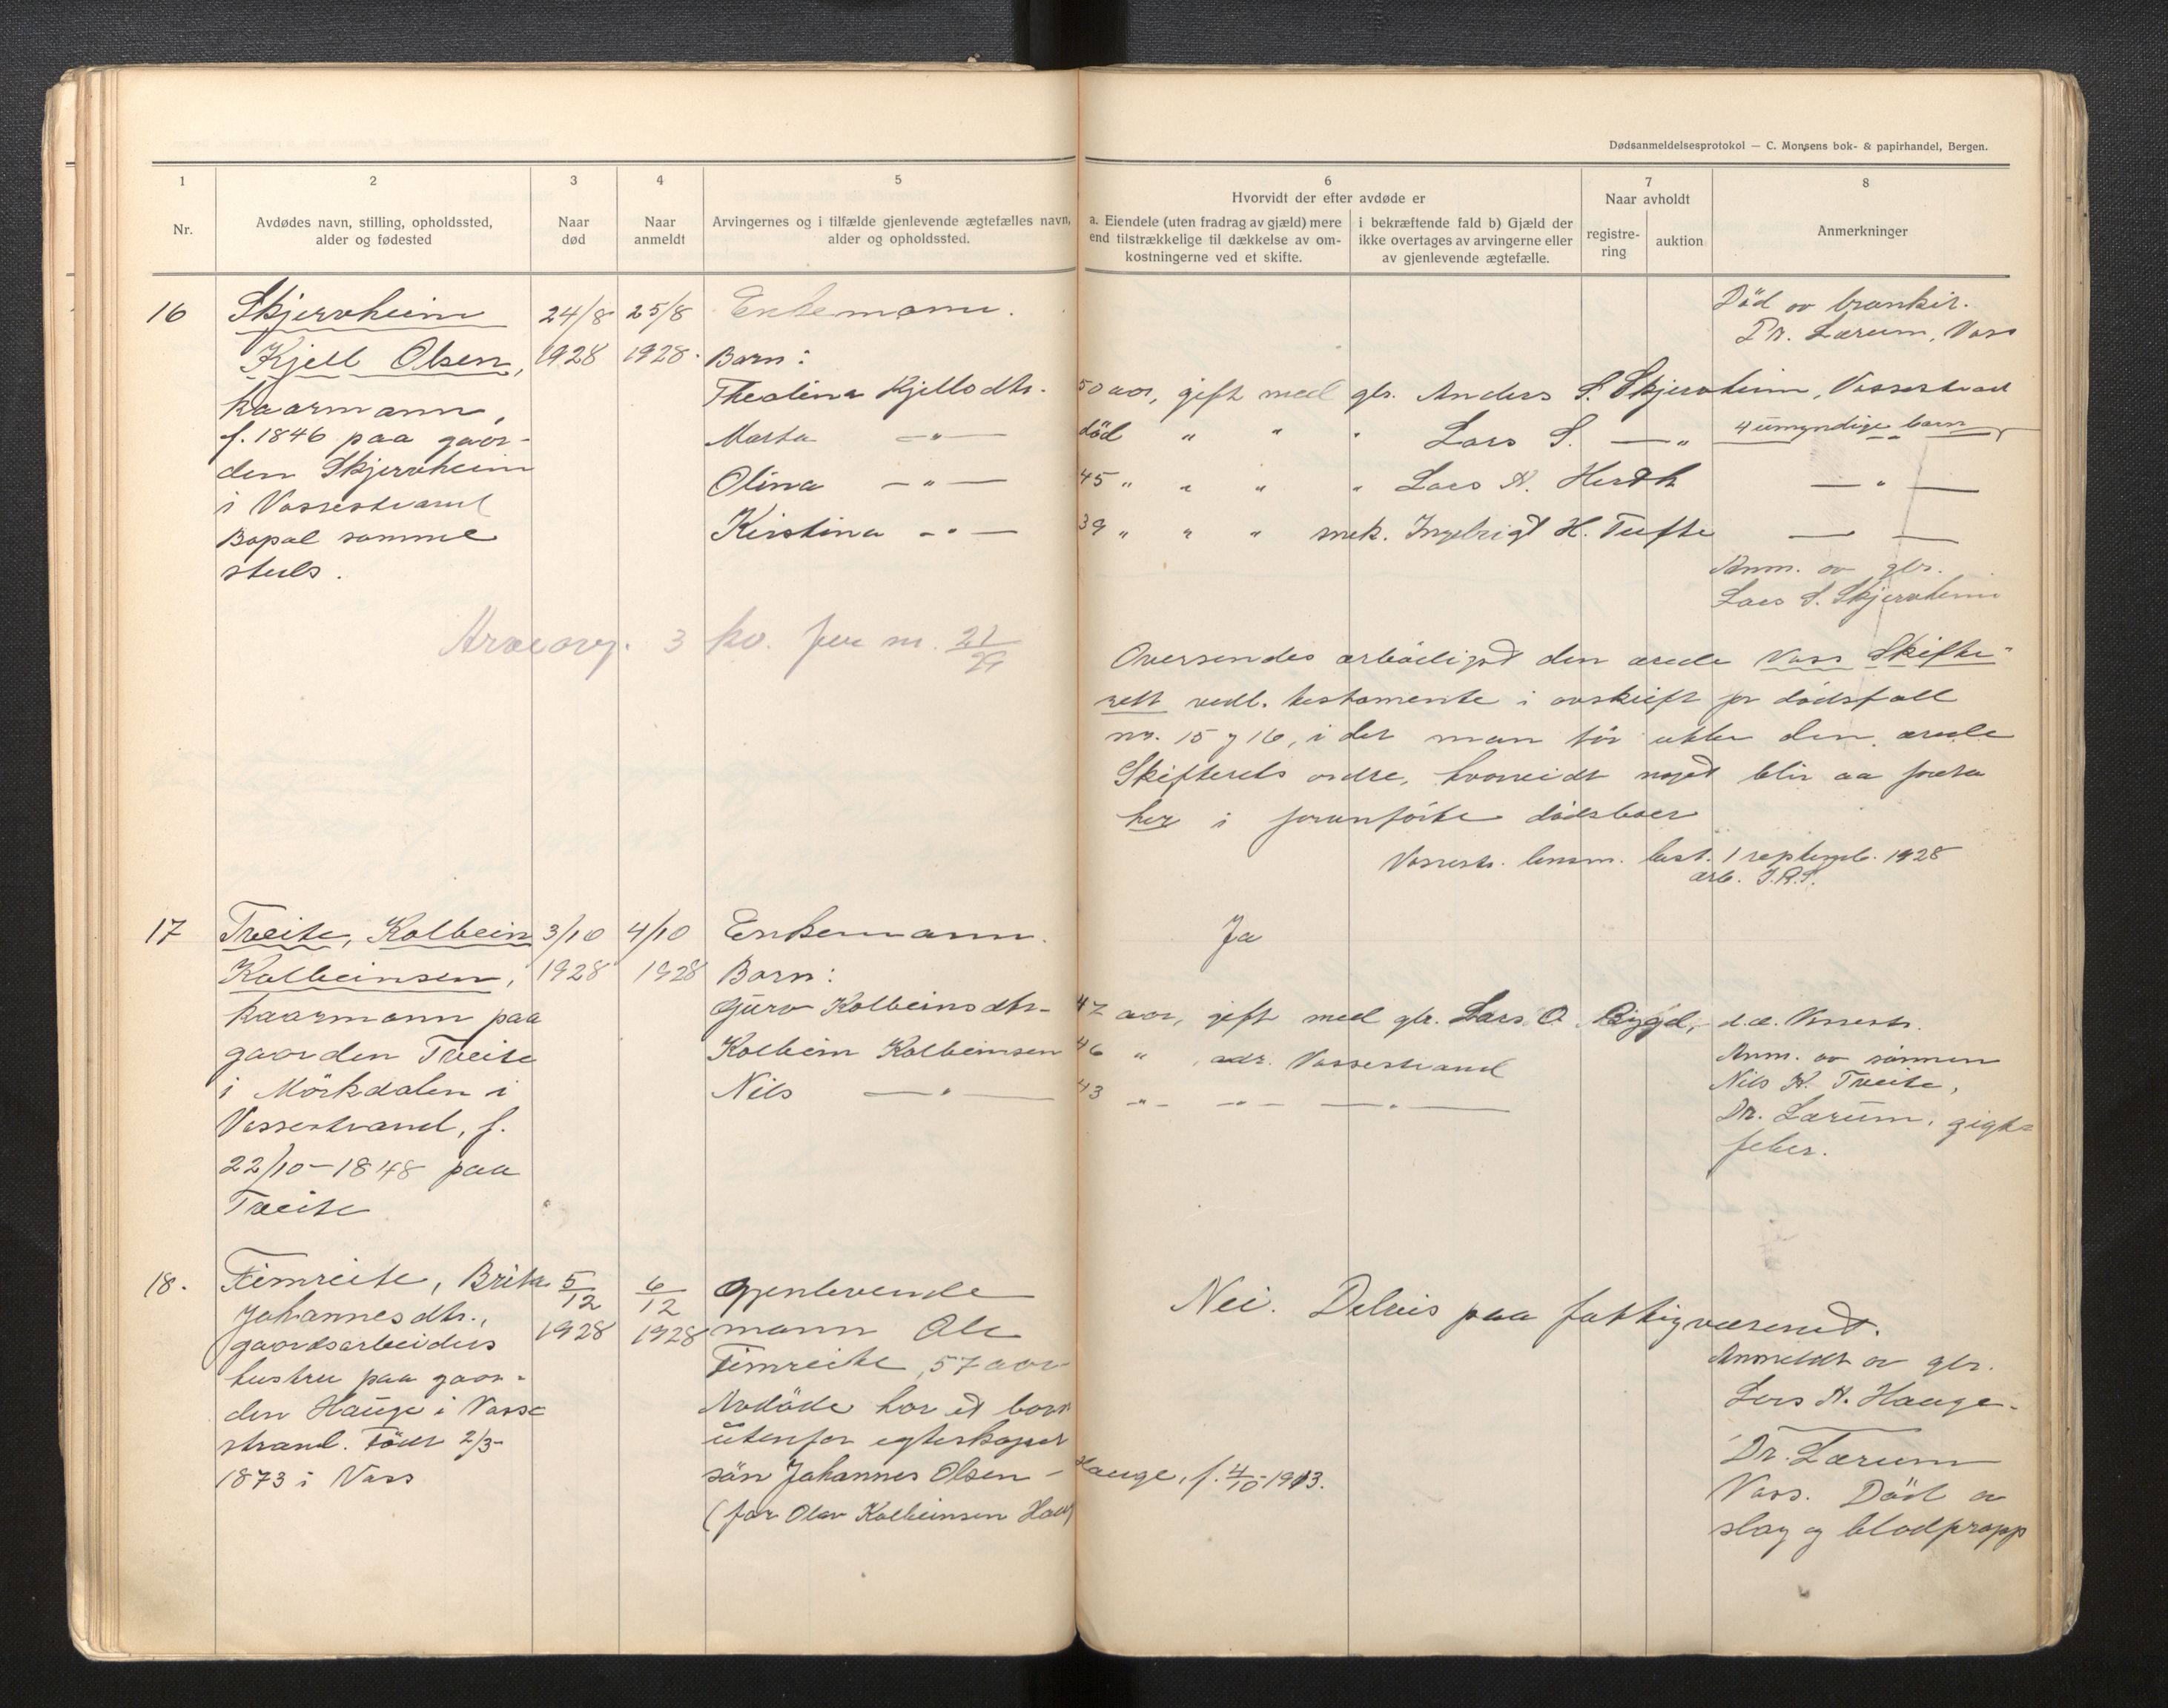 Dødsanmeldelsesprotokol — C. Monsens bok- & papirhandel, Bergen.
1
2
3
4
5
6
7
8
Nr.
Avdødes navn, stilling, opholdssted,
alder og fødested
Naar
død
Naar
anmeldt
Arvingernes og i tilfælde gjenlevende ægtefælles navn,
alder og opholdssted.
Hvorvidt der efter avdøde er
a. Eiendele (uten fradrag av gjæld) mere
end tilstrækkelige til dækkelse av om-
kostningerne ved et skifte.
i bekræftende fald b) Gjæld der
ikke overtages av arvingerne eller
av gjenlevende ægtefælle.
Naar avholdt
registre-
ring
auktion
Anmerkninger
16
Skjervheim
Kjell Olsen,
kaarmann,
f. 1846 paa gaor-
den Skjervheim
i Vossestrand
Bopal samme
steds.
24/8
1928
25/8
1928.
Enkemann.
Barn:
Theolina Kjellsdtr. 50 aar, gift med gbr. Anders S. Skjervheim, Vossestrand
Marta —"— död " " " Lars S. —"
Olina —"— 45 " " " " Lars N. Herdt —"—
Kirstina —"— 39 " " " snek. Ingebrigt H. Tufte — —
Död av brankit.
Dr. Lærum, Voss
4 umyndige barn
Anm. av gbr.
Lars S. Skjervheim
Arveavg. 3 kv. jnr nr. 21/29
Oversendes ærbödigst den ærede Voss Skifte-
rett vedl. testamente i avskrift for dödsfall
nr. 15 og 16, idet man tör utbe den ærede
Skifterets ordre, hvorvidt noget blir aa foreta
her i foranförte dödsboer
Vossestr. lensm. best. 1 septemb. 1928
ærb. I.R.S.
17
Tveite, Kolbein
Kolbeinsen,
kaarmann paa
gaorden Tveite
i Mörkdalen i
Vossestrand, f.
22/10-1848 paa
Tveite
3/10
1928
4/10
1928
Enkemann.
Barn:
Gjuro Kolbeinsdtr. 47 aar, gift med gbr. Lars O. Bygd, d.æ. Vossestr.
Kolbein Kolbeinsen 46 " , adr. Vossestrand
Nils —"— 43 —"— —"— —"—
Ja
Anm. av sönnen
Nils K. Tveite,
Dr. Lærum, gigt-
feber.
18.
Fimreite, Brita
Johannesdtr.,
gaordsarbeiders
hustru paa gaor-
den Hauge i Vosse
strand. Född 2/3-
1873 i Voss
5/12
1928
6/12
1928
Gjenlevende
mann Ole
Fimreite, 57 aar
Avdöde har et born
utenfor egteskapet
sön Johannes Olsen - Hauge, f. 4/10-1913.
(far Olav Kolbeinsen Hau
Nei. Delvis paa fattigvæsenet.
Anmeldt av gbr.
Lars N. Hauge.
Dr. Lærum
Voss. Död av
slag og blodpropp